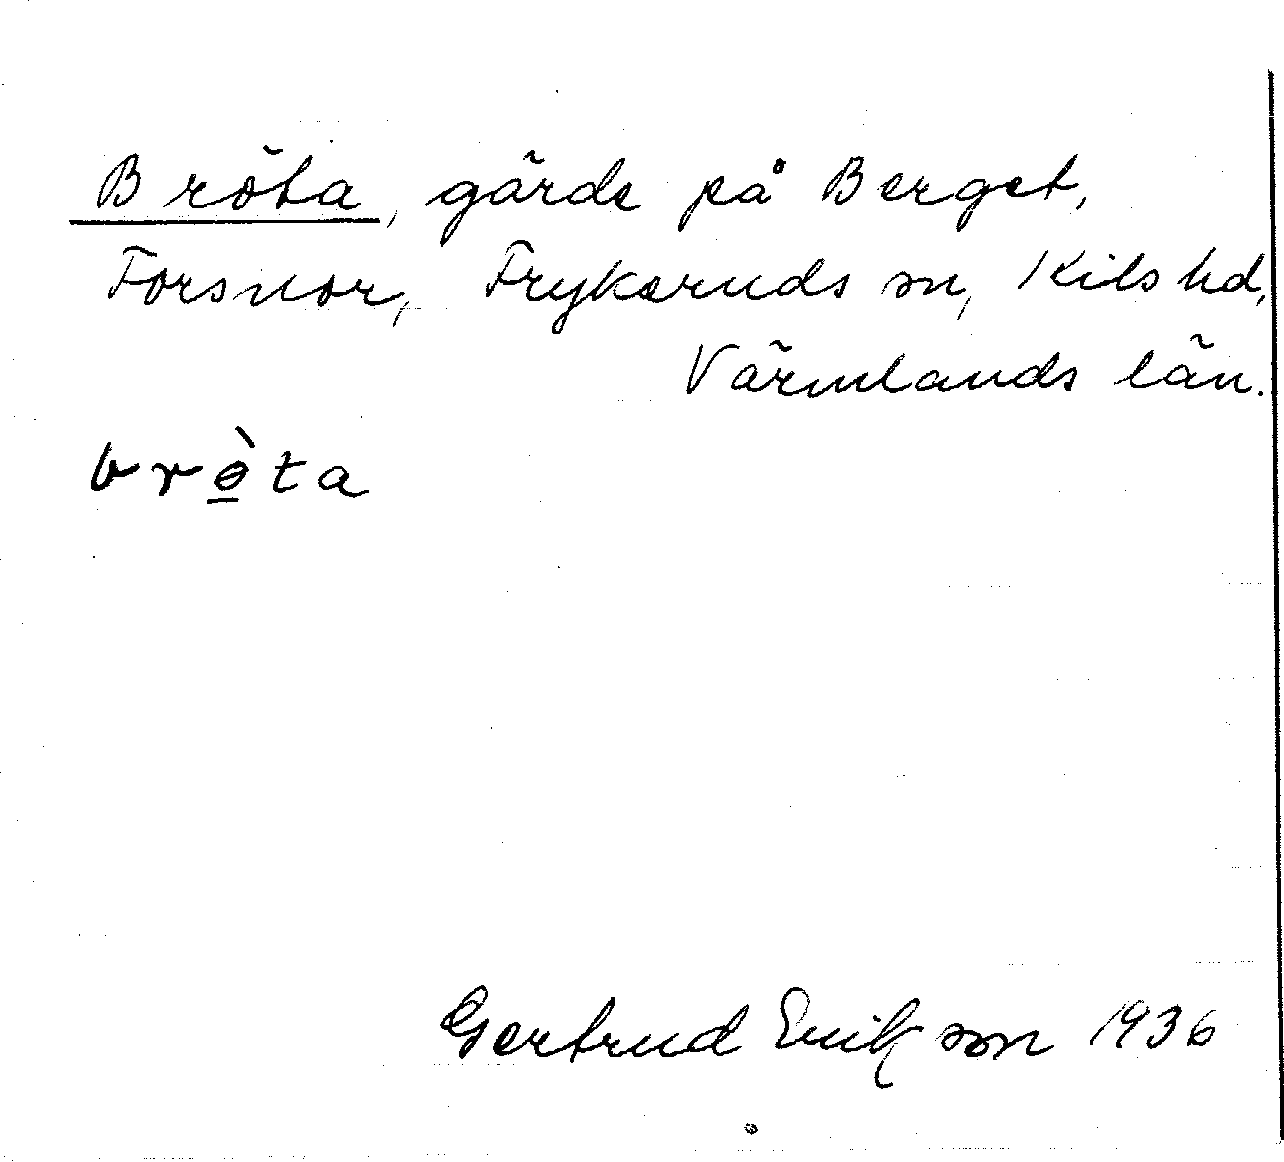 Bröta, gärde på Berget,
Forsnor, Frykeruds sn, Kils hd,
Värmlands län.
brө̲̀ta
Gertrud Erikson 1936